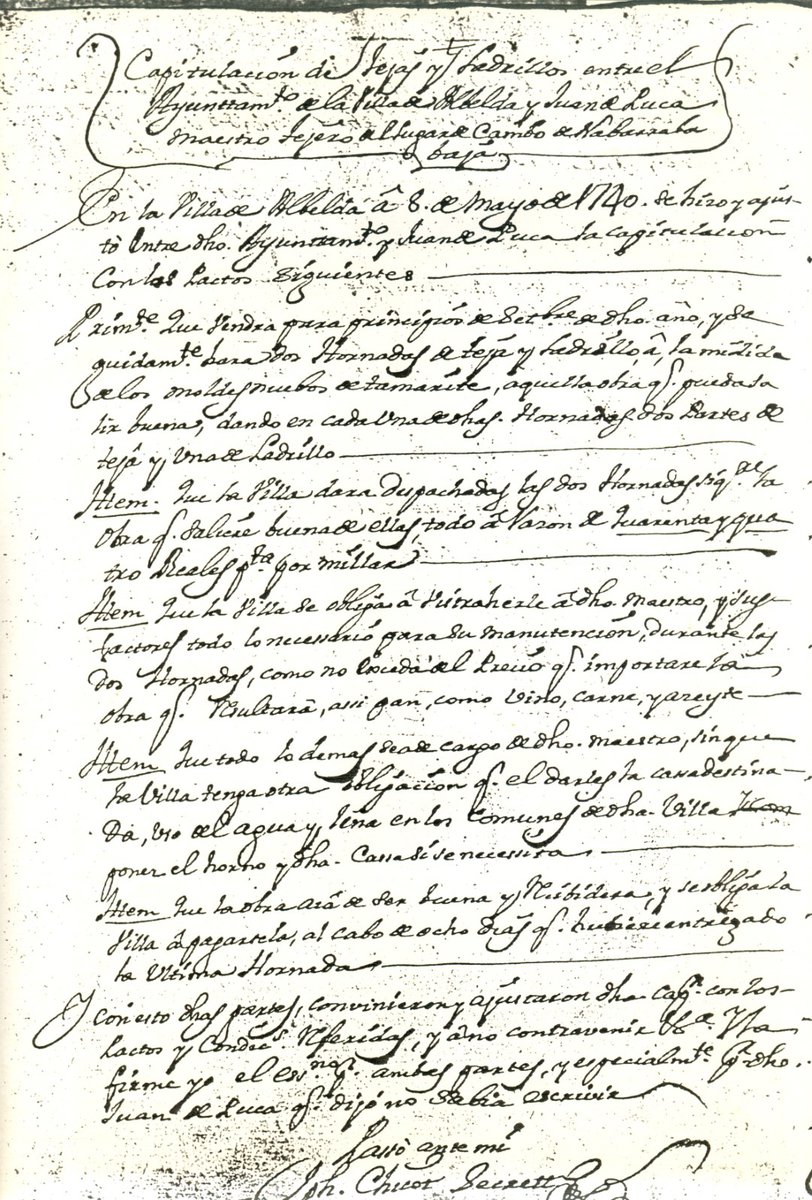 Capitulación de Tejas y Ladrillos entre el
Ayunttamto. de la Villa de Albelda y Juan de Luca
maestro tejero del lugar de Cambo de Nabarra la
baja
En la Villa de Albelda â 8. de Mayo de 1740. se hizo y ajus-
tò entre dho. Ayunttamto. y Juan de Luca la capitulacion
Con los Pactos siguientes
Primte. Que vendra para principios de Setbre. de dho. año, y se
guidamte. hara dos Hornadas de teja y Ladrillo, â la midida
de los moldes nuebos de tamarite, aquella obra q. pueda sa
lir buena, dando en cada una de dhas. Hornadas dos Partes de
teja y una de Ladrillo
Ittem. Que la Villa dara despachadas las dos Hornadas la
obra q. saliere buena de ellas, todo â razon de Quarenta y qua
tro Reales pta. por millar
Ittem Que la Villa se obliga â â dho. maestro, y sus
factores todo lo necessario para su manutención, durante las
dos Hornadas, como no exceda del Precio q. importare la
obra q. Resultarà, assi pan, como vino, carne, y azeyte
Ittem Que todo lo demas sea de cargo de dho. maestro, sin que
la Villa tenga otra obligación q. el darles la casa destina-
da, uso del agua y leña en los Comunes de dha. Villa
poner el horno y dha. Cassa si se necessita
Ittem Que la obra aia de ser buena y Recibidera, y se obliga la
Villa â pagartela, al cabo de ocho dias q. hubiere entregado
la Ultima Hornada
Y con esto dhas partes, convinieron y ajustaron dha capn. con los
Pactos y Condics. Referidas, y a no contravenir
firme yo el essno. pr. ambas partes, y especialmte. pr. dho.
Juan de Luca q. dijo no sabia escrivir
Passò ante mi
Jph. Chicot Secrett